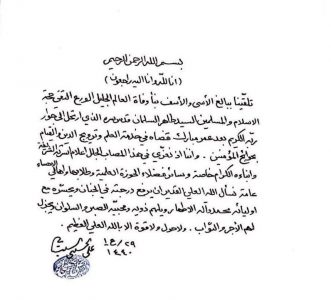 بسم الله الرحمن الرحيم
(انا لله وانا اليه راجعون)
تلقينا ببالغ الأسى والأسف نبأ وفاة العالم الجليل الورع التقي حجة
الاسلام والمسلمين السيد طاهر السلمان قدس سره الذي ارتحل الى جوار
ربه الكريم بعد عمر مبارك قضاه في خدمة العلم وترويج الدين والقيام
بحوائج المؤمنين . واننا اذ نعزي في هذا المصاب الجلل اعلام اسرته الشريفة
وابناءه الكرام خاصة وسائر فضلاء الحوزة العلمية وطلابها واهالي الاحساء
عامة نسأل الله العلي القدير ان يرفع درجته في الجنان ويحشره مع
اوليائه محمد وآله الاطهار ويلهم ذويه ومحبيه الصبر والسلوان ويجزل
لهم الاجر والثواب . ولا حول ولا قوة الا بالله العلي العظيم .
٢٩ / ع١ / ١٤٤٠
علي الحسيني السيستاني